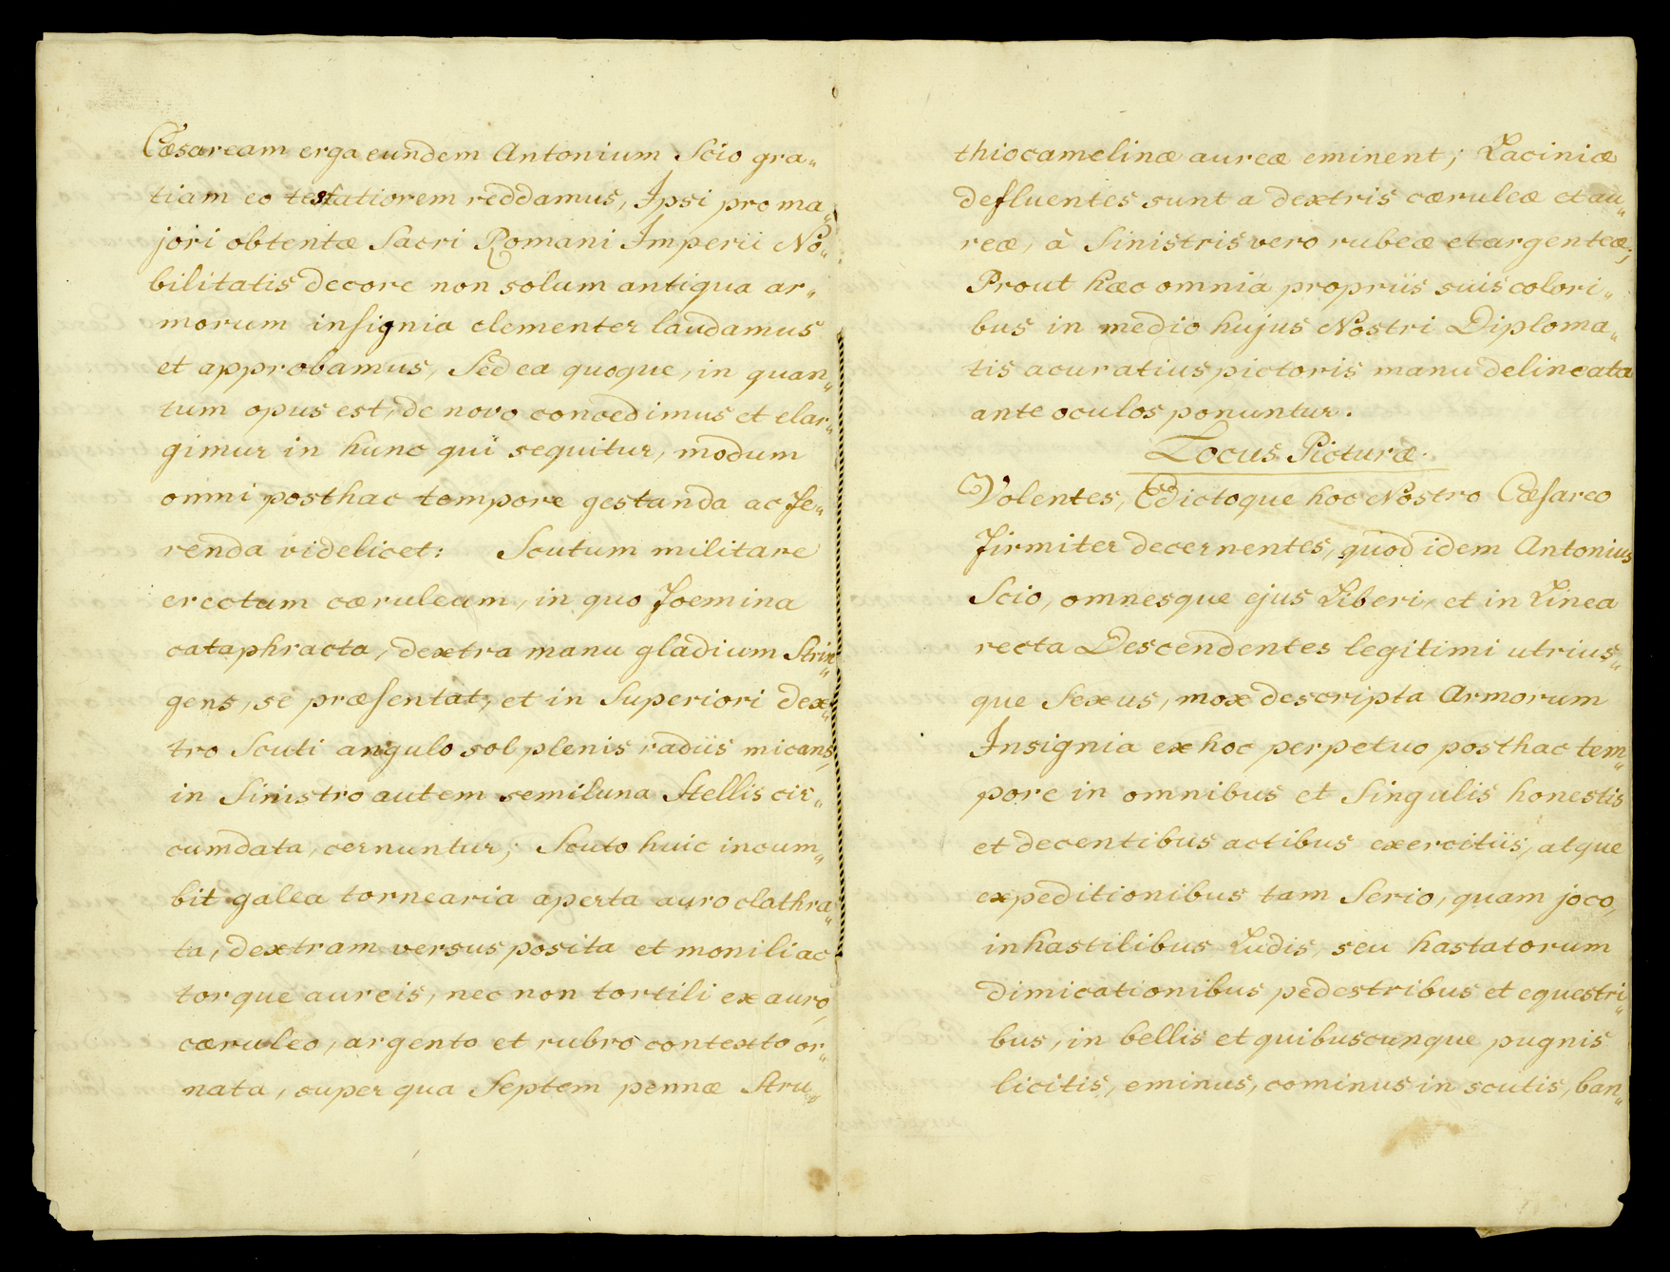 Cæsaream erga eundem Antonium Scio gra„
tiam eo testatiorem reddamus, Ipsi pro ma„
jori obtentæ Sacri Romani Imperii No„
bilitatis decore non solum antiqua ar„
morum insignia clementer laudamus
et approbamus, Sed ea quoque, in quan„
tum opus est, de novo concedimus et elar„
gimur in hunc qui sequitur, modum
omni posthac tempore gestanda ac fe„
renda videlicet: Scutum militare
erectum cæruleum, in quo foemina
cataphracta, dextra manu gladium Strin„
gens, se præsentat, et in Superiori dex„
tro Scuti angulo sol plenis radiis micans,
in Sinistro autem semiluna Stellis cir„
cumdata, cernuntur; Scuto huic incum„
bit galea tornearia aperta auro clathra„
ta, dextram versus posita et monili ac
torque aureis, nec non tortili ex auro,
cæruleo, argento et rubro contexto or„
nata, super qua Septem pennæ Stru„
thiocamelinæ aureæ eminent; Laciniæ
defluentes sunt a dextris cæruleæ et au„
reæ, à Sinistris vero rubeæ et argenteæ;
Prout hæc omnia propriis suis colori„
bus in medio hujus Nostri Diploma„
tis acuratius pictoris manu delineata
ante oculos ponuntur.
Locus Picturæ.
Volentes, Edictoque hoc Nostro Cæsareo
firmiter decernentes, quod idem Antonius
Scio, omnesque ejus Liberi, et in Linea
recta Descendentes legitimi utrius„
que Sexus, mox descripta Armorum
Insignia ex hoc perpetuo posthac tem„
pore in omnibus et Singulis honestis
et decentibus actibus exercitiis, atque
expeditionibus tam Serio, quam joco,
in hastilibus Ludis, seu hastatorum
dimicationibus pedestribus et equestri„
bus, in bellis et quibuscunque pugnis
licitis, eminus, cominus in scutis, ban„